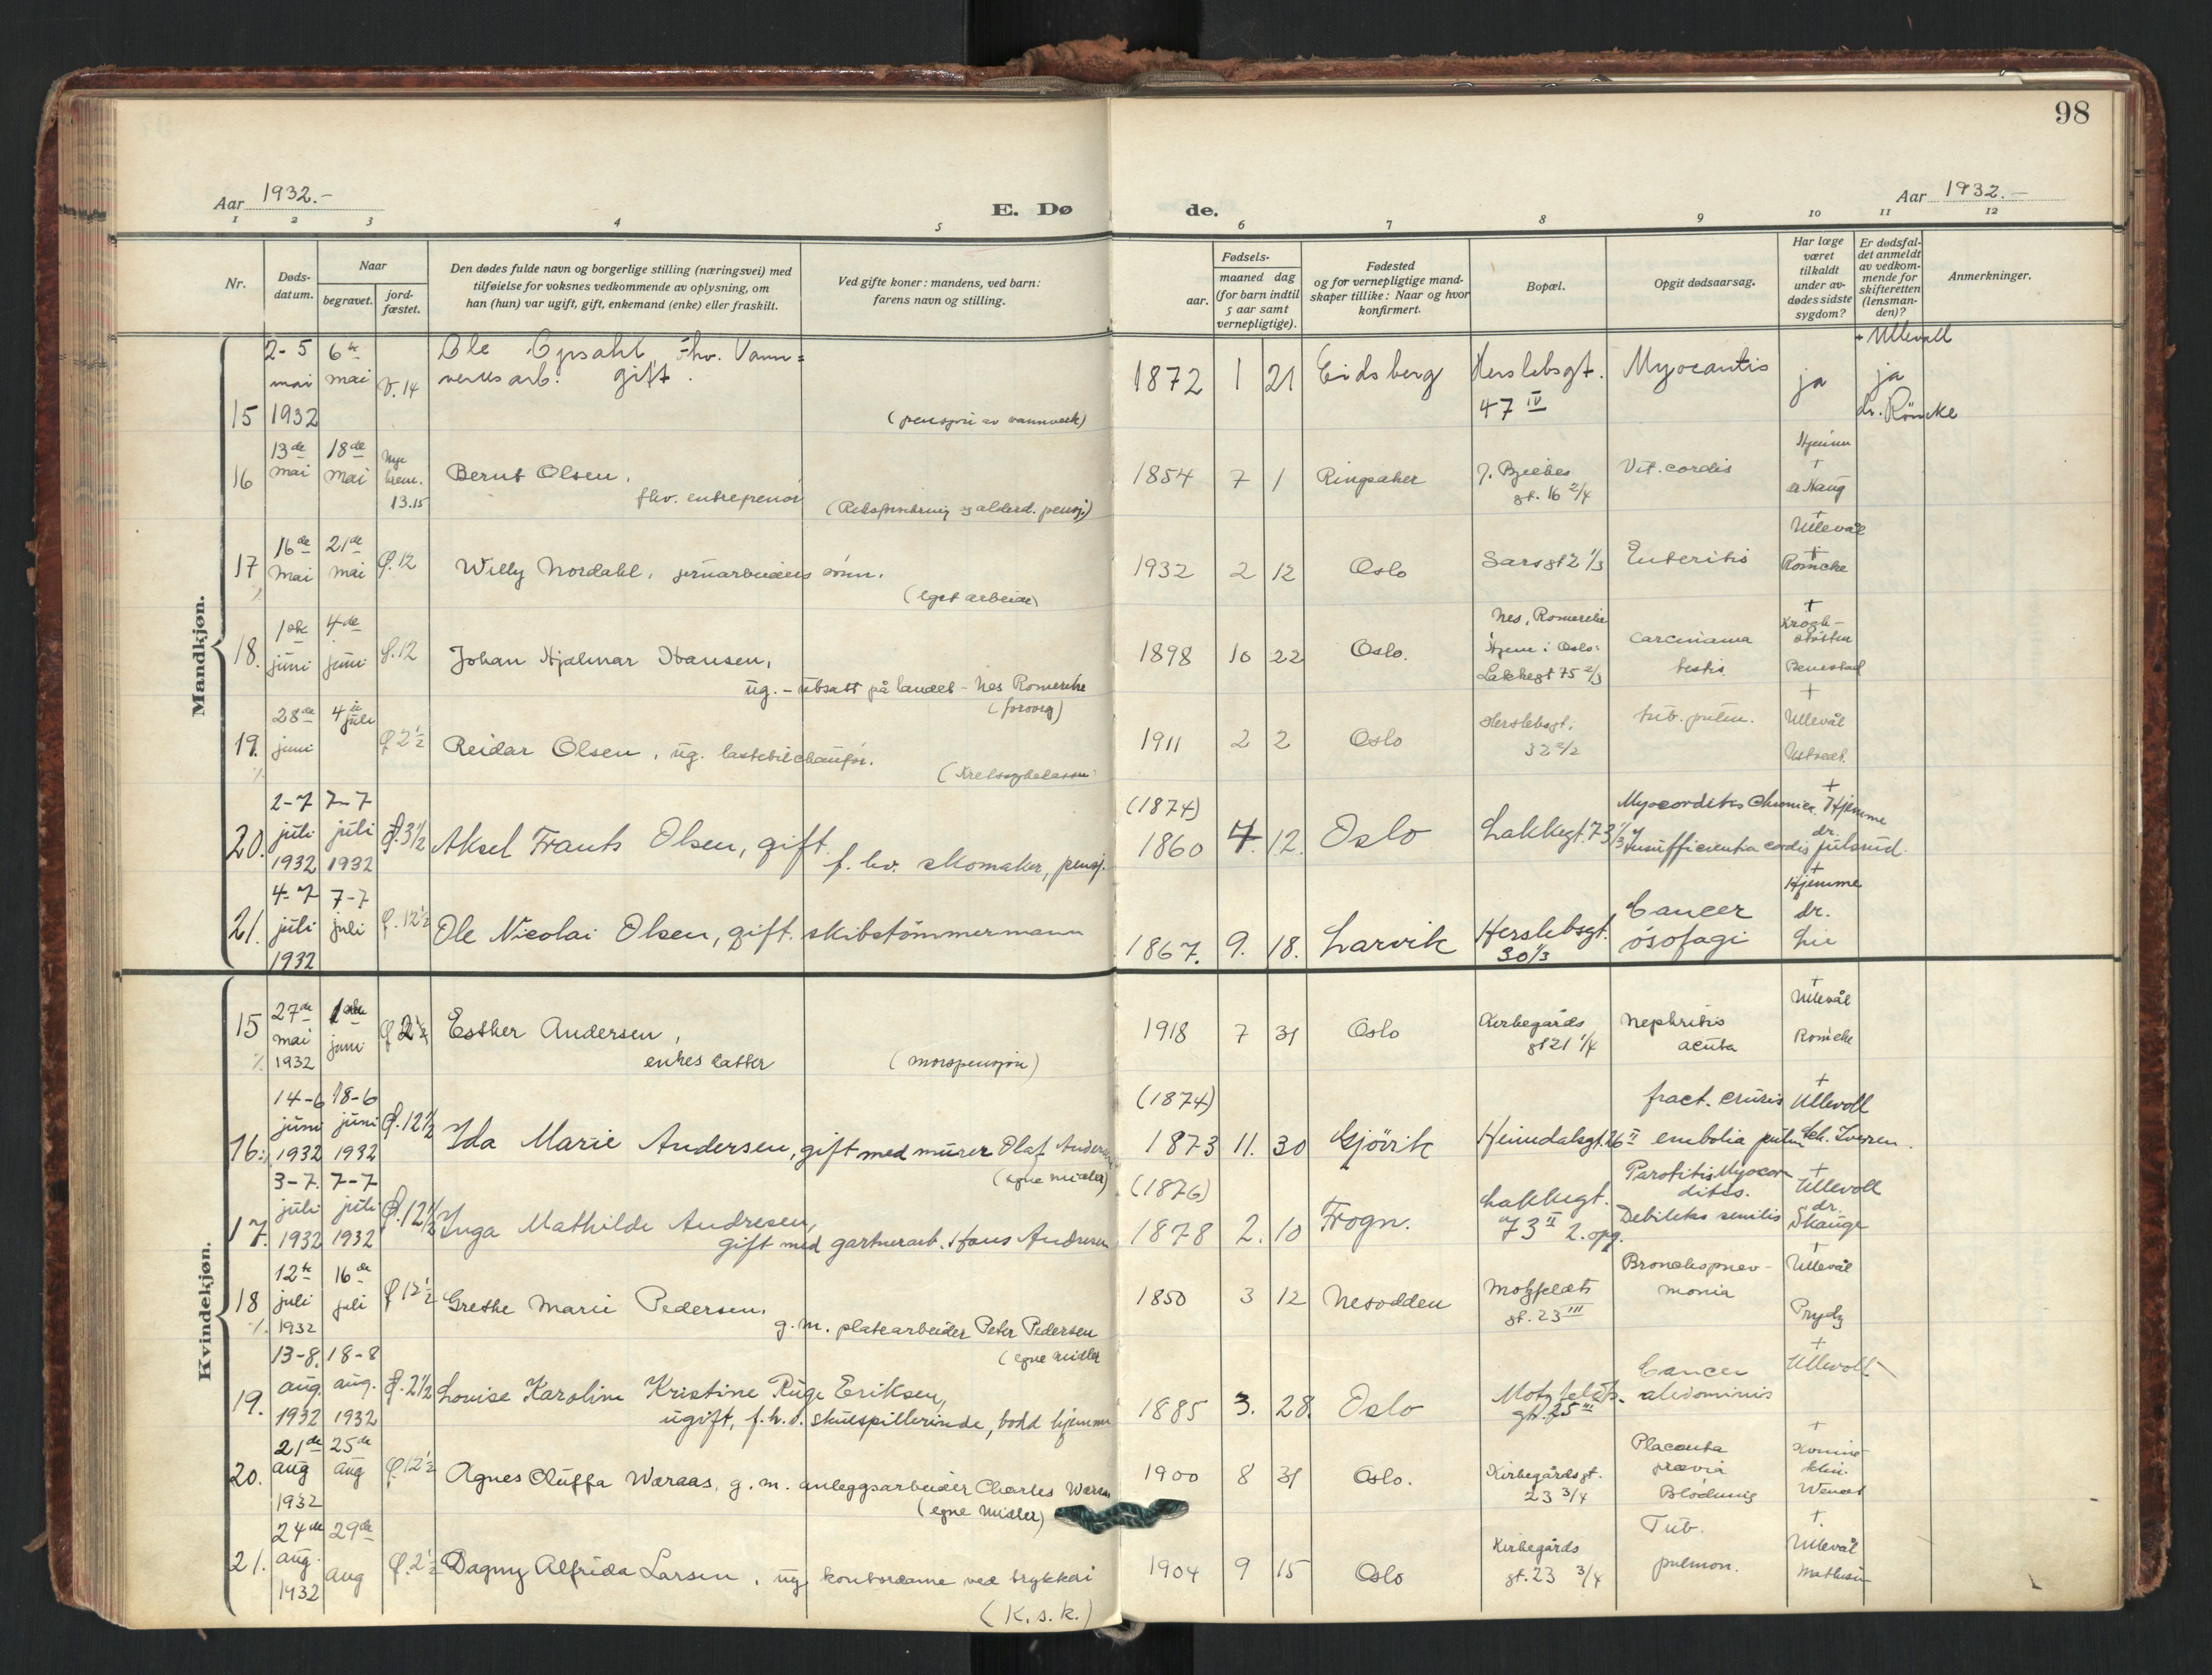 98
Aar 1932.-
E. Dø de.
Aar 1932.-
1 2 3 4 5 6 7 8 9 10 11 12
Nr.
Døds-
datum.
Naar
begravet.
jord-
fæstet.
Den dødes fulde navn og borgerlige stilling (næringsvei) med
tilføielse for voksnes vedkommende av oplysning, om
han (hun) var ugift, gift, enkemand (enke) eller fraskilt.
Ved gifte koner: mandens, ved barn:
farens navn og stilling.
Fødsels-
aar.
maaned dag
(for barn indtil
5 aar samt
vernepligtige).
Fødested
og for vernepligtige mand-
skaper tillike: Naar og hvor
konfirmert.
Bopæl.
Opgit dødsaarsag.
Har læge
været
tilkaldt
under av-
dødes sidste
sygdom?
Er dødsfal-
det anmeldt
av vedkom-
mende for
skifteretten
(lensman-
den)?
Anmerkninger.
Mandkjøn.
15 2-5 mai 1932 6te mai V. 14
Ole Opsahl, fhv. Vann=
verksarb. gift.
(pensjon av vannverk)
1872 1 21 Eidsberg Herslebsgt. 47 IV ja ja
+ Ullevall
dr. Röncke
16 13de mai 18de mai Nye krem. 13.15
Bernt Olsen,
fhv. entreprenør
1854 7 1 Ringsaker gt. 16 2/4 Vit. cordis
Hjemme + dr Haug
17 16de mai 21de mai 12
Willy Nordahl, jernarbeiders sønn.
(eget arbeide)
1932 2 12 Oslo Sarsgt 2 1/3 Enteritis
+ Ullevål Romcke
18. 1ste juni 4de juni 12
Johan Hjalmar Hansen,
ug. - utsatt på landet - Nes Romerike
(forsorg)
1898 10 22 Oslo. Nes, Romerike
Hjem i Oslo:
Lakkegt 75 2/3
Carcinoma testis
+ Krogh-støtten
19. 28de juni 4de juli 2 1/2
Reidar Olsen, ug. lastebilchaufør.
1911 2 2 Oslo Herslebsgt. 32 2/2 tub. pulm.
+ Ullevål
20. 2-7 juli 1932 7-7 juli 1932 3 1/2
Aksel Frants Olsen, gift.
f. hv. skomaker, pensj.
(1874)
1860 7. 12. Oslo Lakkegt. 73 1/3
Myocorditis Chronica.
Insufficientia cordis
+ Hjemme dr. Julsrud.
21. 4-7 juli 1932 7-7 juli 12 1/2
Ole Nicolai Olsen, gift. skibstømmermann
1867. 9. 18. Larvik Herslebsgt. 30 1/3
Cancer ösofagi
+ Hjemme dr. Lie
Kvindekjøn.
15 27de mai 1932 1ste juni 2 1/2
Esther Andersen,
enkes datter
(morspensjon)
1918 7 31 Oslo Kirkegårds gt 21 1/4
Nephritis acuta
+ Ullevål Romcke
16. 14-6 juni 1932 18-6 juni 1932 12 1/2
Ida Marie Andersen, gift med murer Olaf Andersen
(egne midler)
(1874)
1873 11. 30 Gjövik Heimdalsgt. 26 II
fract. cruris
embolia pulm
+ Ullevoll
17. 3-7. juli 1932 7-7 juli 1932 12 1/2
Inga Mathilde Andresen,
gift med gartnerarb. Hans Andresen
(1876)
1878 2. 10 Frogn. Lakkegt. 73 II 2. opg.
Parotitis Myocor
ditis.
Debilitas senilis
+ Ullevoll dr. Skauge
18 12te juli 1932 16de juli 12 1/2
Grethe Marie Pedersen,
g. m. platearbeider Peter Pedersen
(egne midler
1850 3 12 Nesodden Motzfeldts gt. 23 III
Bronchopnev-
monia
+ Ullevål Prydz
19. 13-8. aug. 1932 18-8 aug. 1932 2 1/2
Louise Karoline Kristine Ruge Eriksen,
ugift, f. h. v. skuespillerinde, bodd hjemme
1885 3. 28. Oslo Motzfeldts. gt. 25 III
Cancer abdominis
+ Ullevoll
20. 21de aug 1932 25de aug 12 1/2
Agnes Oluffa Waraas, g. m. anleggsarbeider Charles Waraas
(egne midler)
1900 8 31 Oslo. Kirkegårdsgt. 23 3/4
Placenta prævia
Blødning
+ Kvinne klin.
21. 24de aug. 1932 29de aug 2 1/2
Dagny Alfrida Larsen, ug kontordame ved trykkeri
(K. s. k.)
1904 9 15 Oslo Kirkegårds gt. 23 3/4
Tub. pulmon.
+ Ullevål Mathisen